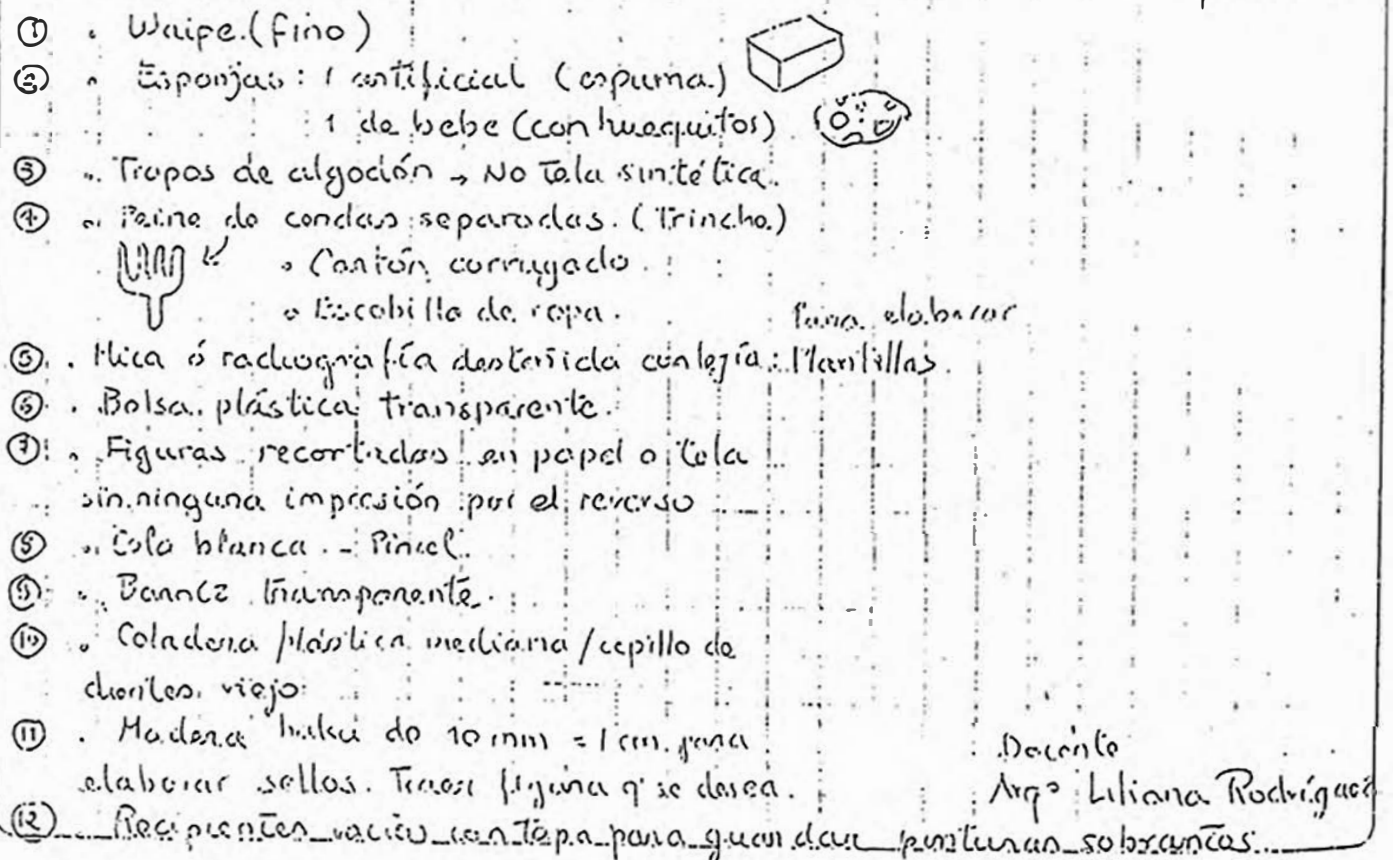 ① . Waipe. (fino)
② . Esponjas: 1 artificial (espuma)
1 de bebe (con huequitos)
③ . Trapos de algodón → No Tela sintética.
④ . Peine de cerdas separadas. (Trinche)
. Cartón corrugado
. Escobilla de ropa.
⑤ . Mica ó radiografía desteñida con lejía: Para elaborar Plantillas.
⑥ . Bolsa plástica transparente.
⑦ . Figuras recortadas en papel o tela
sin ninguna impresión por el reverso
⑧ . Cola blanca. - Pincel.
⑨ . Barniz transparente.
⑩ . Coladera plástica mediana / cepillo de
dientes viejo
⑪ . Madera balsa de 10 mm = 1 cm. para
elaborar sellos. Traer figura q' se desea.
⑫ Recipientes vacíos con tapa para guardar pinturas sobrantes
Docente
Arqº Liliana Rodríguez